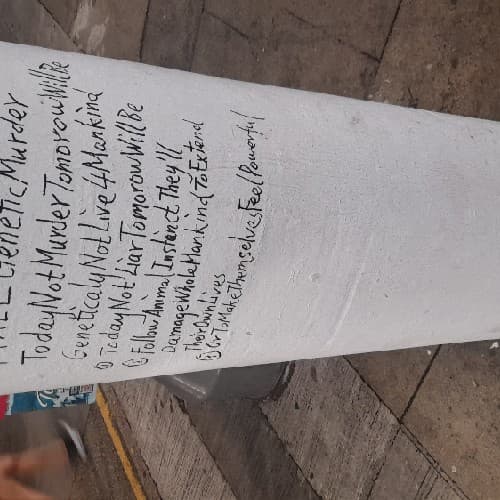 Genetic Murder
Today Not Murder Tomorow Will Be
Geneticaly Not Live 4 Mankind
① Today Not Liar Tomorow Will Be
② Follow Animal Instinct They'll
Damage Whole Mankind To Extend
Their Own Lives
③ Or To Make Themselves Feel Powerful